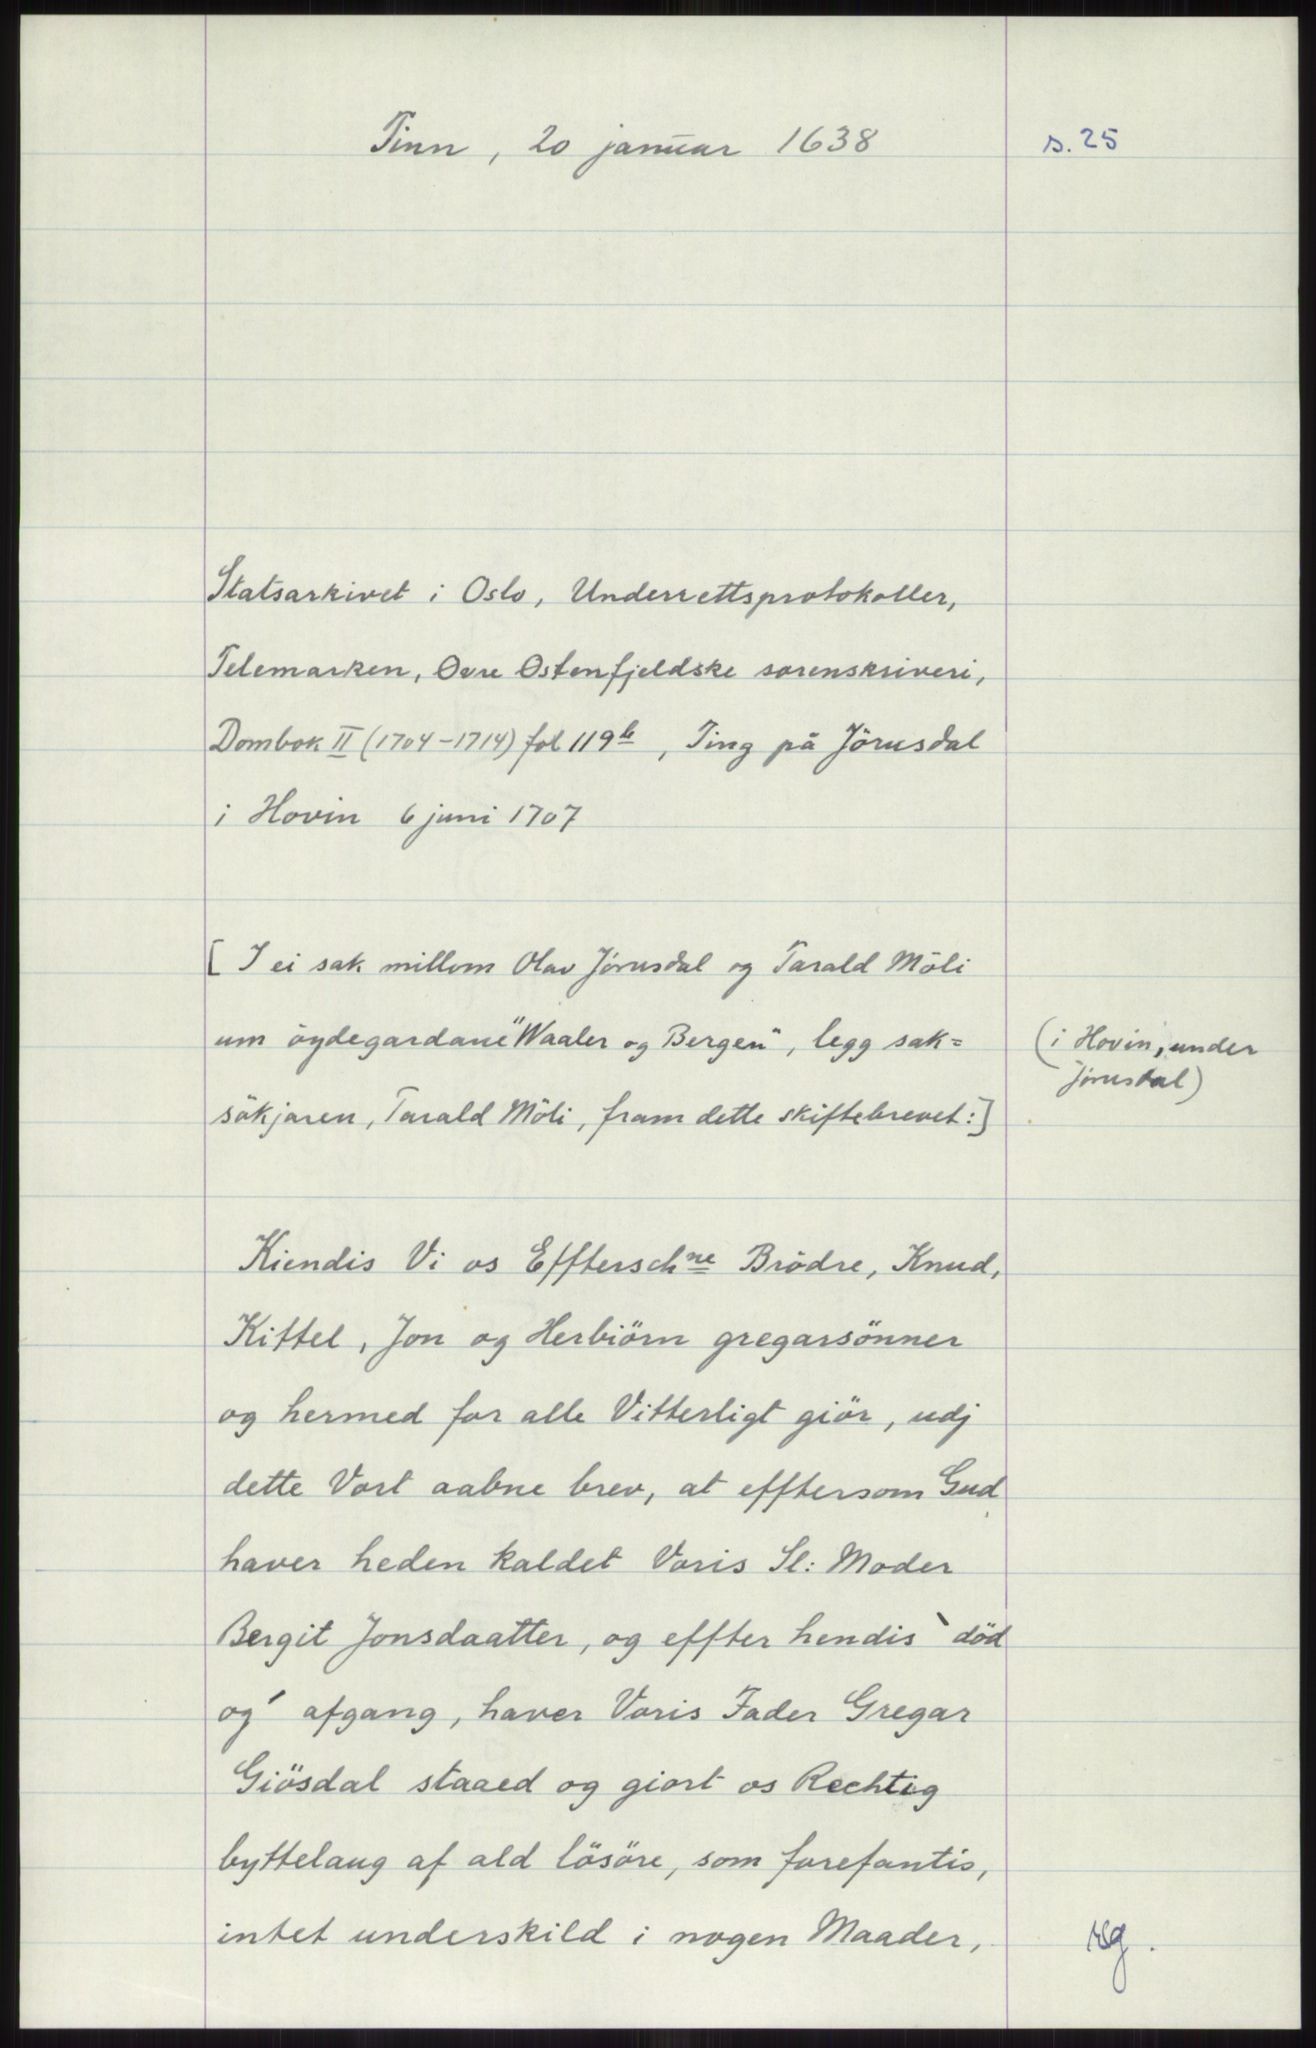 Tinn, 20 januar 1638
s. 25
Statsarkivet i Oslo, Underrettsprotokoller,
Telemarken, Øvre Østenfjeldske sorenskriveri,
Dombok II (1704-1714) fol 119b, Ting på Jörusdal
i Hovin 6 juni 1707
[I ei sak millom Olav Jörusdal og Tarald Möli
um öydegardane "Waaler og Bergen", legg sak=
(i Hovin, under
Jörusdal)
sökjaren, Tarald Möli, fram dette skiftebrevet:]
Kiendis Vi os Effterschne Brödre, Knud,
Kittel, Jon og Herbiörn gregarsönner
og hermed for alle Vitterligt giör, udj
dette Vort aabne brev, at efftersom Gud
haver heden kaldet Voris Sl: Moder
Bergit Jonsdaatter, og effter hendis död
og afgang, haver Voris Fader Gregar
Giösdal staaed og giort os Rechtig
byttelaug af ald lösöre, som forefantis,
intet underskild i nogen Maader,